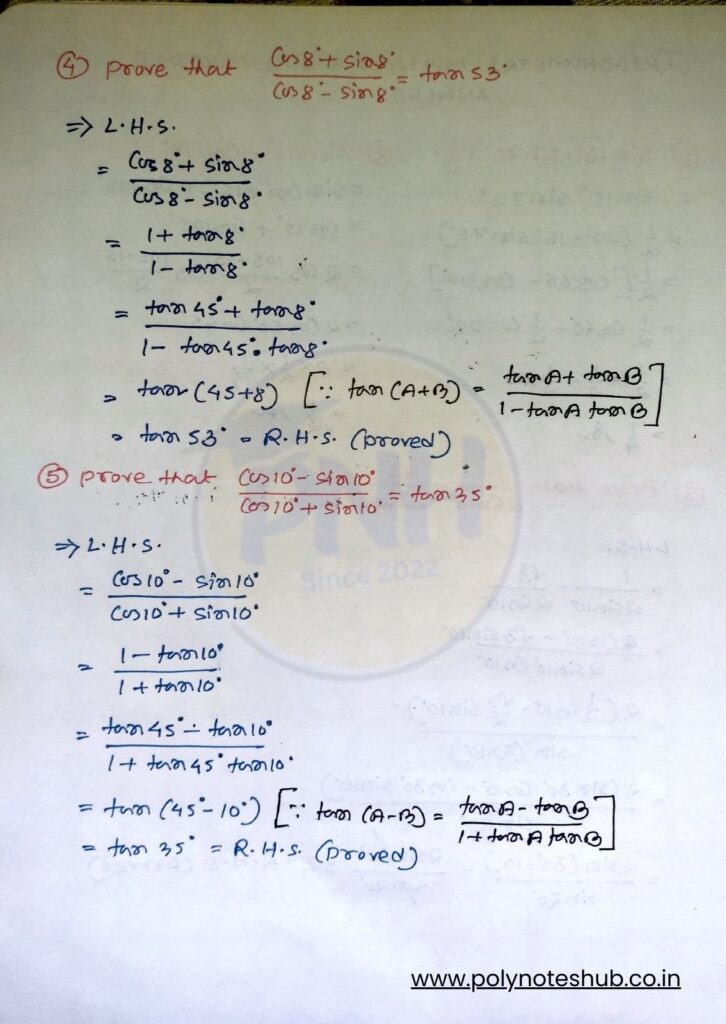 ④ Prove that (Cos8° + sin8°)/(Cos8° - sin8°) = tan 53°
⇒ L.H.S.
= (Cos8° + sin8°)/(Cos8° - sin8°)
= (1 + tan8°)/(1 - tan8°)
= (tan45° + tan8°)/(1 - tan45°. tan8°)
= tan (45+8) [∵ tan (A+B) = (tanA + tanB)/(1 - tanA tanB)]
= tan 53° = R.H.S. (proved)
⑤ Prove that (Cos10° - sin10°)/(Cos10° + sin10°) = tan 35°
⇒ L.H.S.
= (Cos10° - sin10°)/(Cos10° + sin10°)
= (1 - tan10°)/(1 + tan10°)
= (tan45° - tan10°)/(1 + tan45° tan10°)
= tan (45° - 10°) [∵ tan (A-B) = (tanA - tanB)/(1 + tanA tanB)]
= tan 35° = R.H.S. (proved)
PNH
Since 2022
www.polynoteshub.co.in